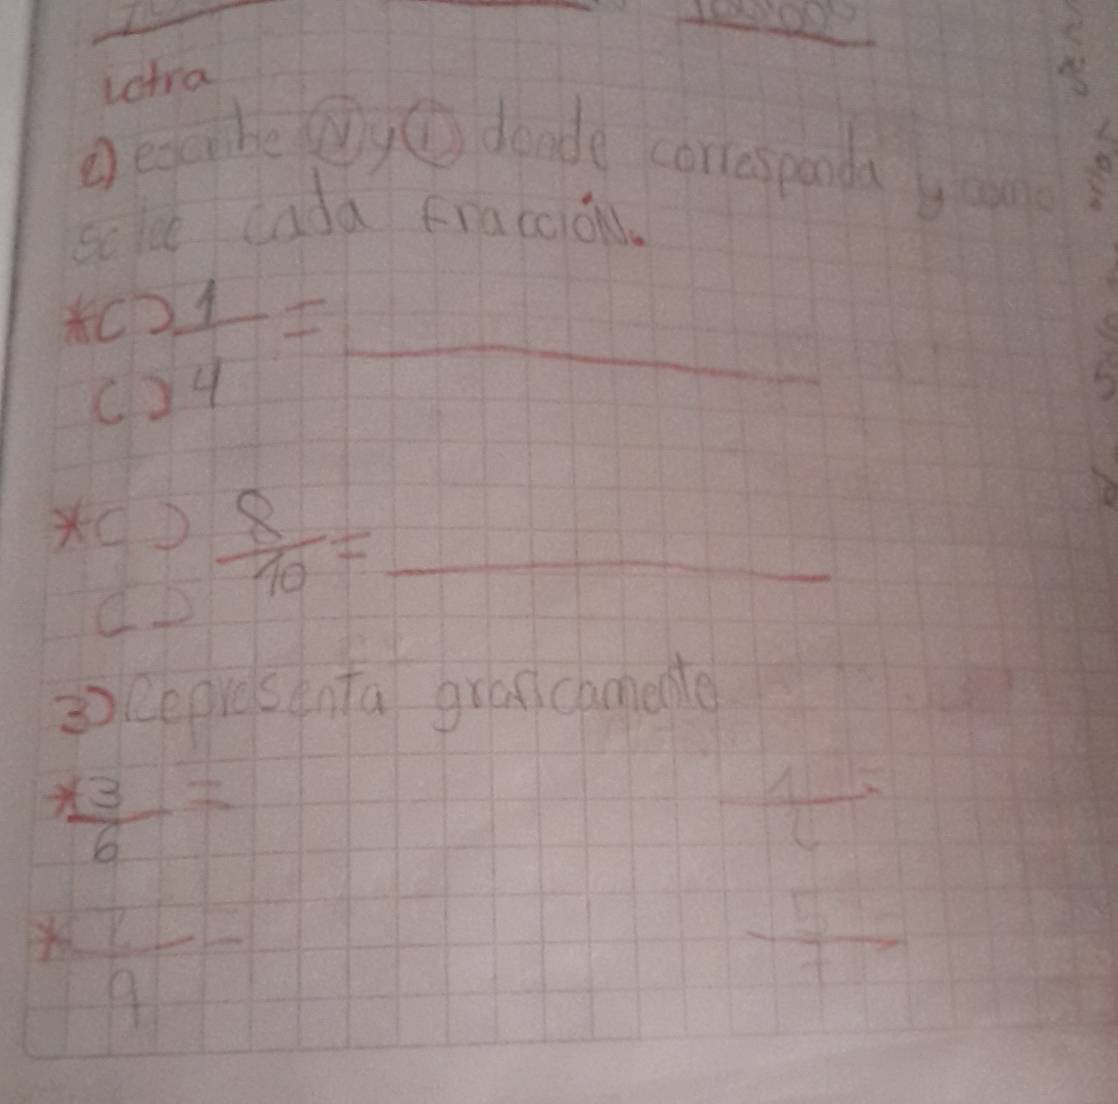 Letra
2) escribe (N) y (D) donde corresponda y como
se lee cada Fracción.
*( ) 1 = 
( ) 4
*( ) 8/10 =
( )
3) Representa graficamente
*3/6 = 1/2 =
*2/9 = 5/7 =